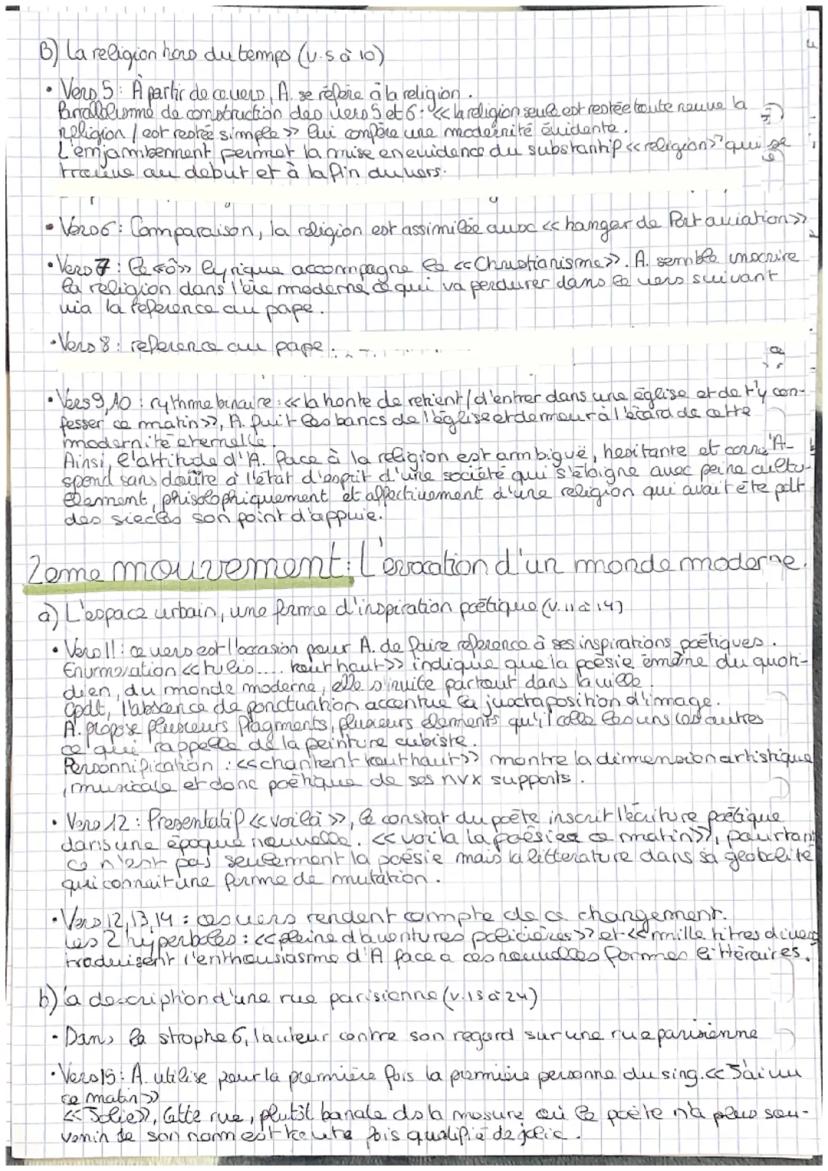 B) La religion hors du temps (v.5 à 10)
• Vers 5 : À partir de ce vers, A. se réfère à la religion.
Parallélisme de construction des vers 5 et 6 : << la religion seule est restée toute neuve la
religion / est restée simple >> lui confère une modernité évidente.
L'enjambement permet la mise en evidence du substantif << religion >> qui se
trouve au debut et à la fin du vers.
• Vers 6 : Comparaison, la religion est assimilée avec << hangar de Port aviation >>
• Vers 7 : Le << ô >> lyrique accompagne le << Christianisme >>. A. semble inscrire
la religion dans l'ère moderne ce qui va perdurer dans le vers suivant
via la réference au pape.
• Vers 8 : réference au pape.
• Vers 9, 10 : rythme binaire : << la honte de retient / d'entrer dans une église et de t'y con-
fesser ce matin >>, A. fuit les bancs de l'église et demeur à l'écard de cette
modernité eternelle.
Ainsi, l'attitude d'A. face à la religion est ambiguë, hesitante et corre
spond sans doute à l'état d'esprit d'une société qui s'éloigne avec peine cultu-
ellement, philosophiquement et affectivement d'une religion qui avait été pdt
des siecles son point d'appuie.
2eme mouvement : L'evocation d'un monde moderne.
a) L'espace urbain, une forme d'inspiration poëtique (v.11 à 14)
• Vers 11 : ce vers est l'occasion pour A. de faire réference à ses inspirations poëtiques.
Enumeration << tu lis .... tout haut >> indique que la poësie émane du quoti-
dien, du monde moderne, elle s'invite partout dans la ville.
Cpdt, l'absence de ponctuation accentue la juxtaposition d'image.
A. propose plusieurs fragments, plusieurs élements qu'il colle les uns les autres
ce qui rappelle de la peinture cubiste.
Personnification : << chantent tout haut >> montre la dimension artistique
, musicale et donc poëtique de ses nvx supports.
• Vers 12 : Presentatif << voilà >>, le constat du poëte inscrit l'écriture poëtique
dans une époque nouvelle. << voila la poësie ce matin >>, pourtant
ce n'est pas seulement la poësie mais la litterature dans sa globalité
qui connait une forme de mutation.
• Vers 12, 13, 14 : ces vers rendent compte de ce changement.
Les 2 hyperboles : << pleine d'aventures policières >> et << mille titres divers
traduisent l'enthousiasme d'A face a ces nouvelles formes littéraires.
b) la description d'une rue parisienne (v.15 à 24)
• Dans la strophe 6, l'auteur centre son regard sur une rue parisienne
• Vers 15 : A. utilise pour la première fois la premiere personne du sing. << J'ai vu
ce matin >>
<< Jolie >>, Cette rue, plutôt banale ds la mesure où le poëte n'a plus sou-
venir de son nom est toute fois qualifié de jolie.